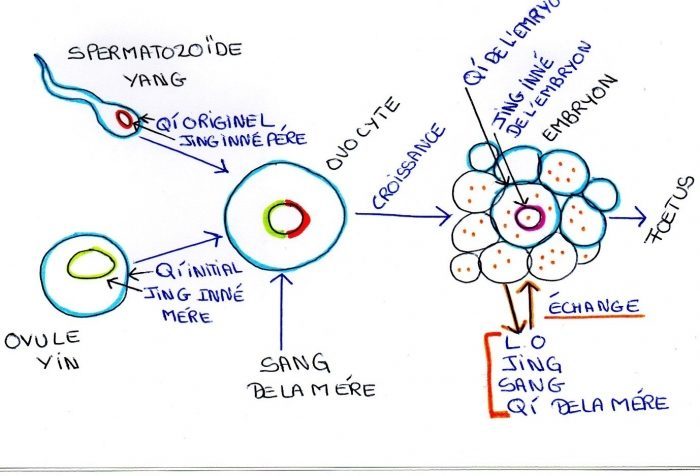 SPERMATOZOÏDE
YANG
QÍ ORIGINEL
JING INNÉ PÉRE
OVULE
YIN
QÍ INITIAL
JING INNÉ
MÉRE
OVOCYTE
SANG
DE LA MÉRE
CROISSANCE
QÍ DE L'EMBRYO
JING INNÉ
DE L'EMBRYON
EMBRYON
FŒTUS
ÉCHANGE
L.O
JING
SANG
QÍ DE LA MÉRE